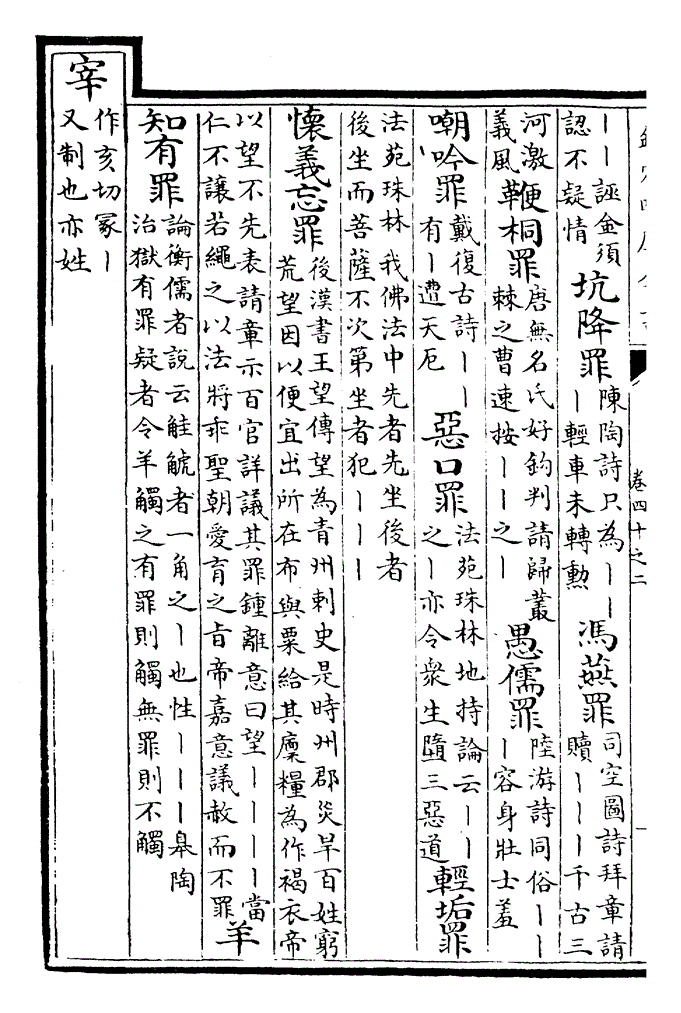 卷四十之二
丨丨誣金須
認不疑情
坑降罪
陳陶詩只為丨丨
丨輕車未轉勲
馮燕罪
司空圖詩拜章請
贖丨丨丨千古三
河激
義風
鞭桐罪
唐無名氏好鈞判請歸叢
棘之曹速按丨丨之丨
愚儒罪
陸游詩同俗丨丨
丨容身壯士羞
嘲吟罪
戴復古詩丨丨
有丨遭天厄
惡口罪
法苑珠林地持論云丨丨
之丨亦令衆生墮三惡道
輕垢罪
法苑珠林我佛法中先者先坐後者
後坐而菩薩不次第坐者犯丨丨丨
懷義忘罪
後漢書王望傳望為青州刺史是時州郡災旱百姓窮
荒望因以便宜出所在布與粟給其廩糧為作褐衣帝
以望不先表請章示百官詳議其罪鍾離意曰望丨丨丨丨當
仁不讓若繩之以法將乖聖朝愛育之旨帝嘉意議赦而不罪
羊
知有罪
論衡儒者說云觟𧣾者一角之丨也性丨丨丨皋陶
治獄有罪疑者令羊觸之有罪則觸無罪則不觸
宰
作亥切冢丨
又制也亦姓